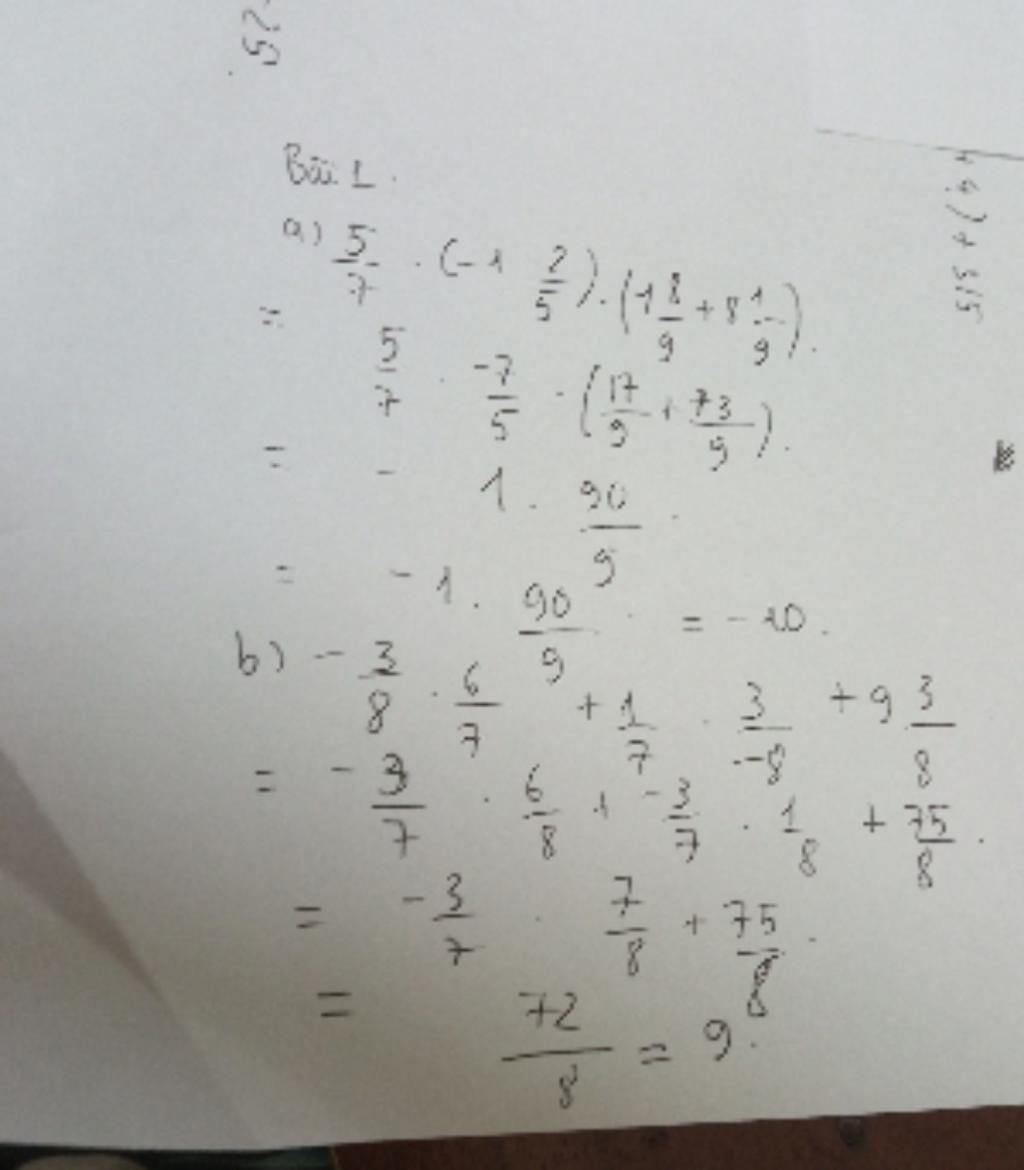 5?
Bài 1.
a) 5/7 . (-1 2/5) . (1 8/9 + 8 1/9).
= 5/7 . -7/5 . (17/9 + 73/9).
= - 1 . 90/9 .
= - 1 . 90/9 . = - 10.
b) - 3/8 . 6/7 + 1/7 . 3/-8 + 9 3/8
= - 3/7 . 6/8 + -3/7 . 1/8 + 75/8 .
= - 3/7 . 7/8 + 75/8 .
= 72/8 = 9.